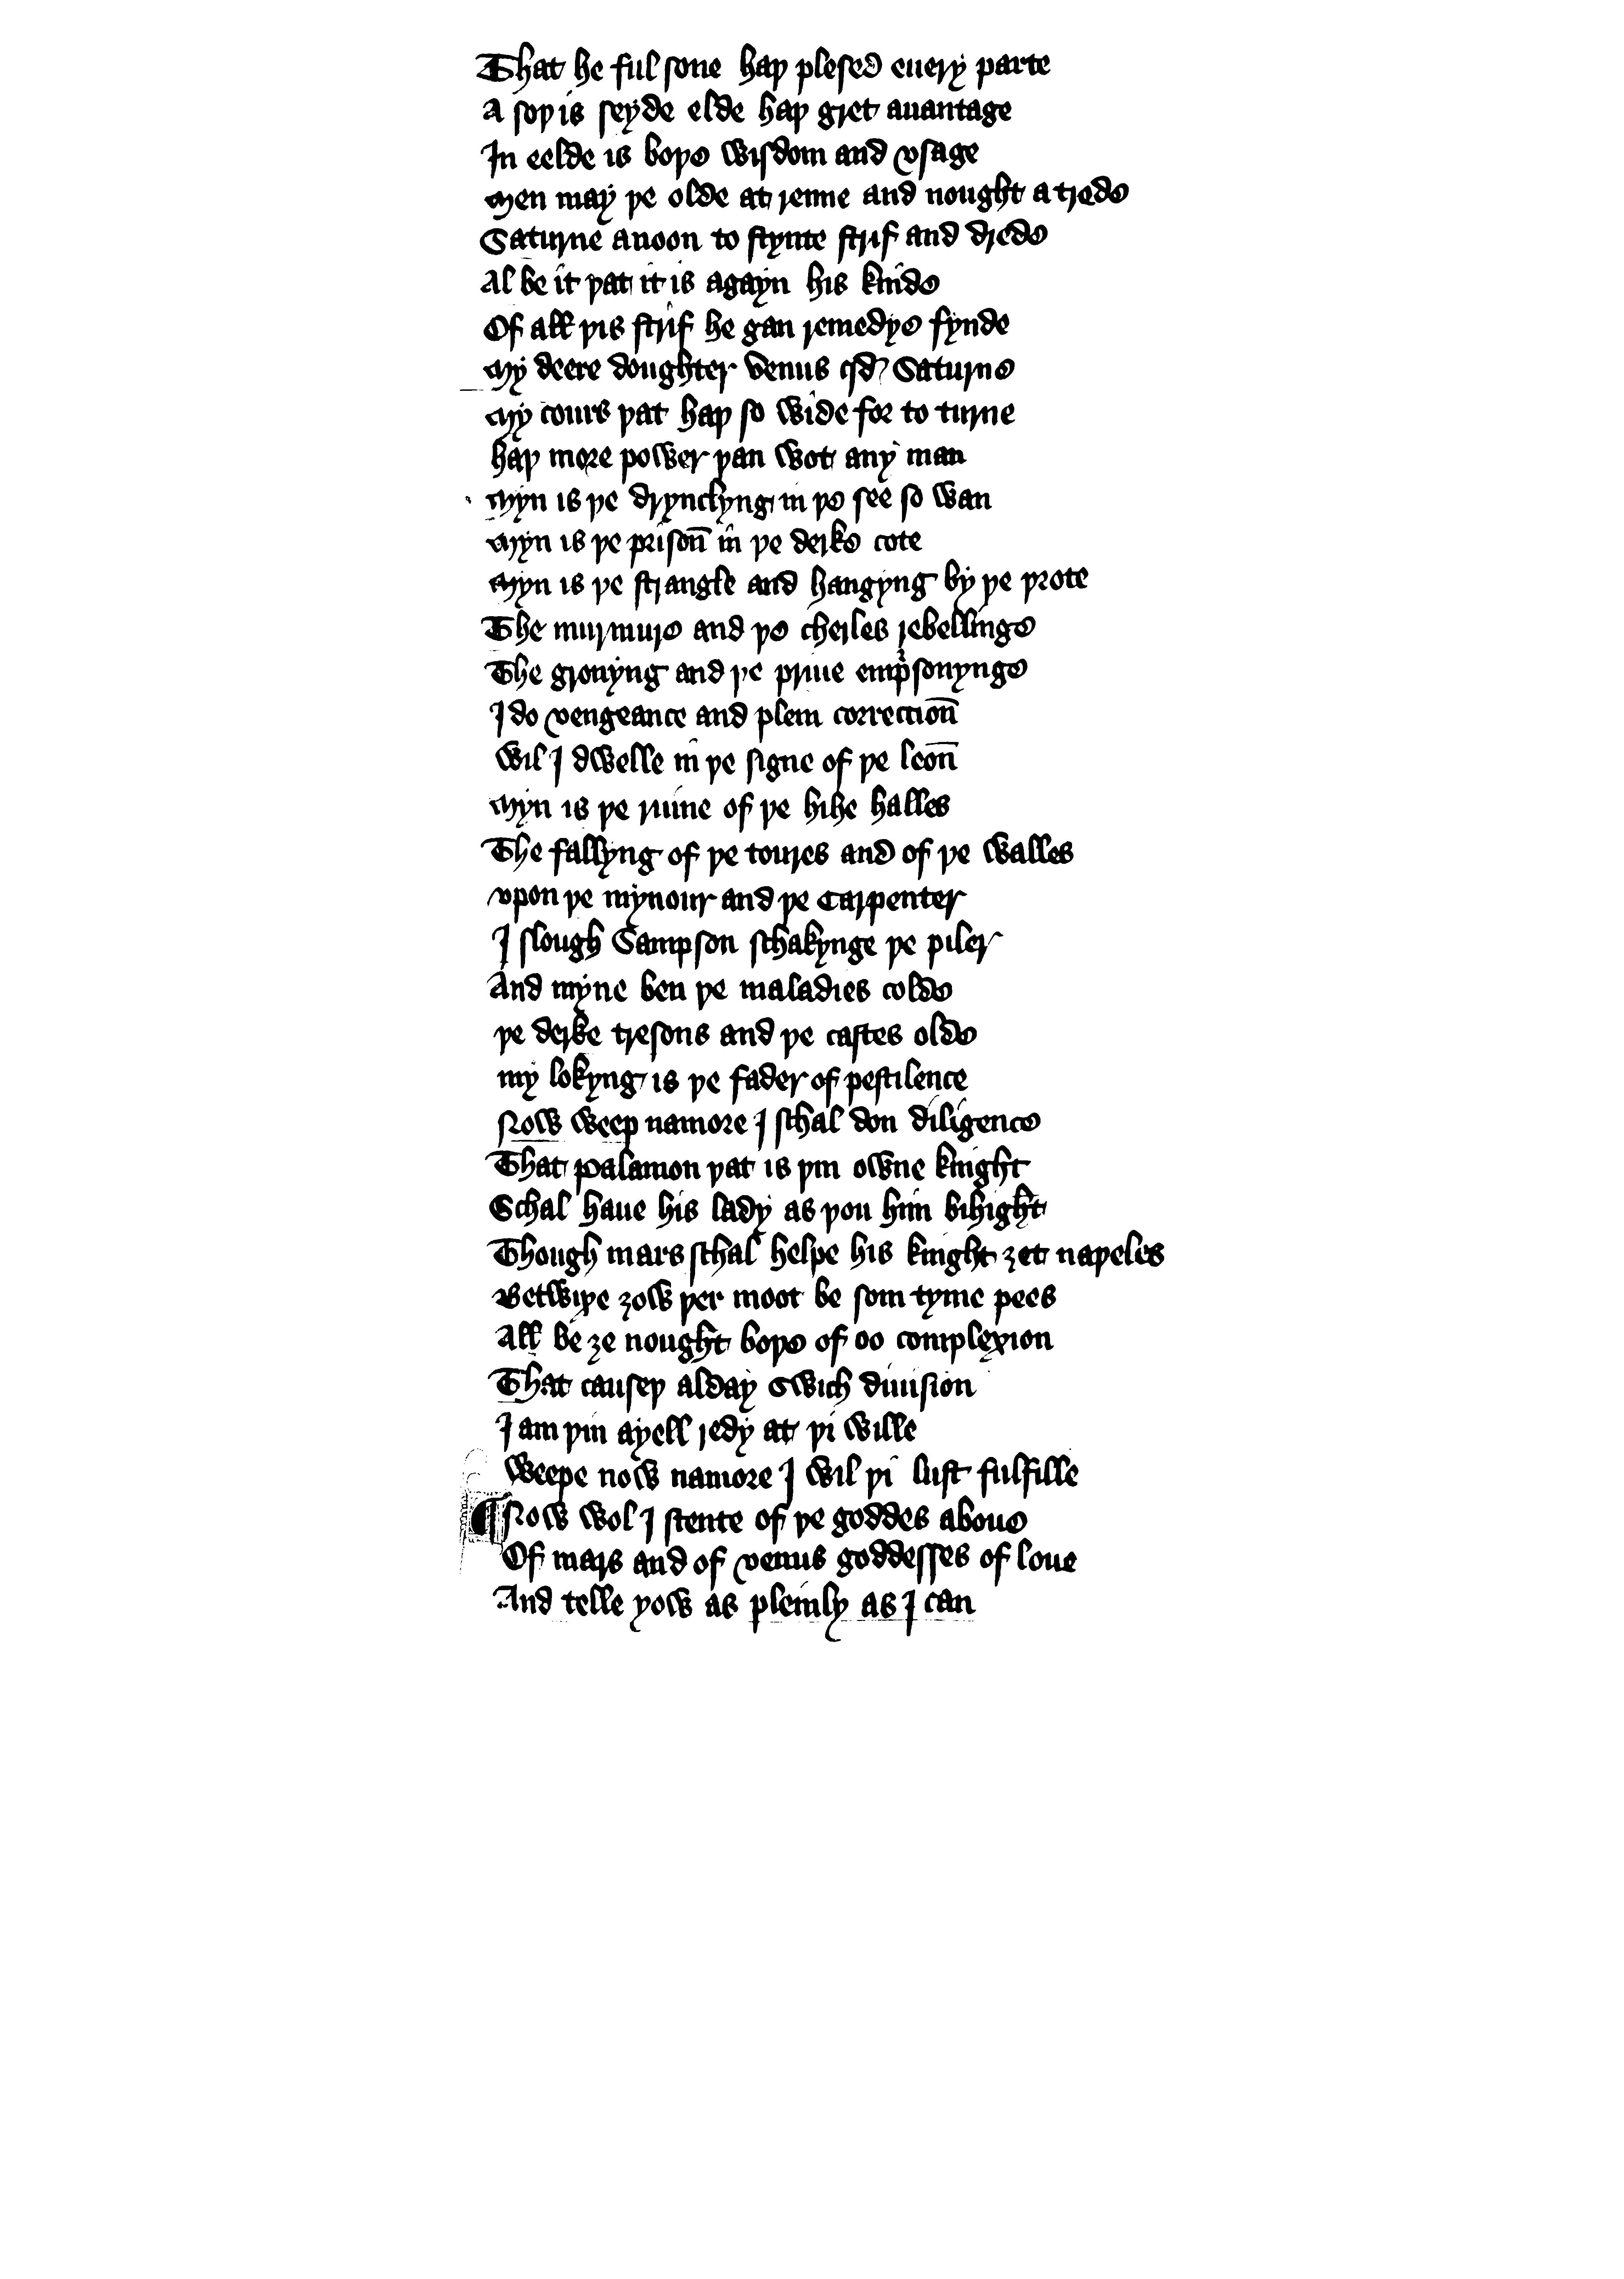 That he ful sone haþ plesed euery parte
A soþ is seyde elde haþ gret auantage
In eelde is boþe wisdom and vsage
Men may þe olde at renne and nought at rede
Saturne anoon to stynte strif and drede
Al be it þat it is agayn his kinde
Of all þis strif he gan remedye fynde
My deere doughter Venus qd Saturne
My cours þat haþ so wide for to turne
haþ more power þan wot any man
Myn is þe drynchyng in þe see so wan
Myn is þe prison in þe derke cote
Myn is þe strangle and hangyng by þe þrote
The murmure and þe cherles rebellinge
The gronyng and þe priue emprsonynge
I do vengeance and plein correction
Wil I dwelle in þe signe of þe leon
Myn is þe ruine of þe hihe halles
The fallyng of þe toures and of þe walles
vpon þe mynour and þe Carpenter
I slough Sampson schakynge þe piler
And myne ben þe maladies colde
þe derke tresons and þe castes olde
my lokyng is þe fader of pestilence
Now weep namore I schal don diligence
That Palamon þat is þin owne knight
Schal haue his lady as þou him bihight
Though mars schal helpe his knight ȝet naþeles
Betwixe ȝow þer moot be som tyme pees
All be ȝe nought boþe of oo complexion
That causeþ alday swich diuision
I am þin ayell redy at þi wille
Weepe now namore I wil þi lust fulfille
¶ Now wol I stente of þe goddes aboue
Of mars and of venus goddesses of loue
And telle yow as pleinly as I can